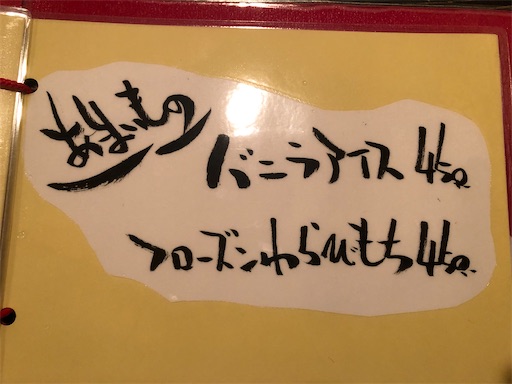 あまいもの
バニラアイス 450
フローズンわらびもち 450